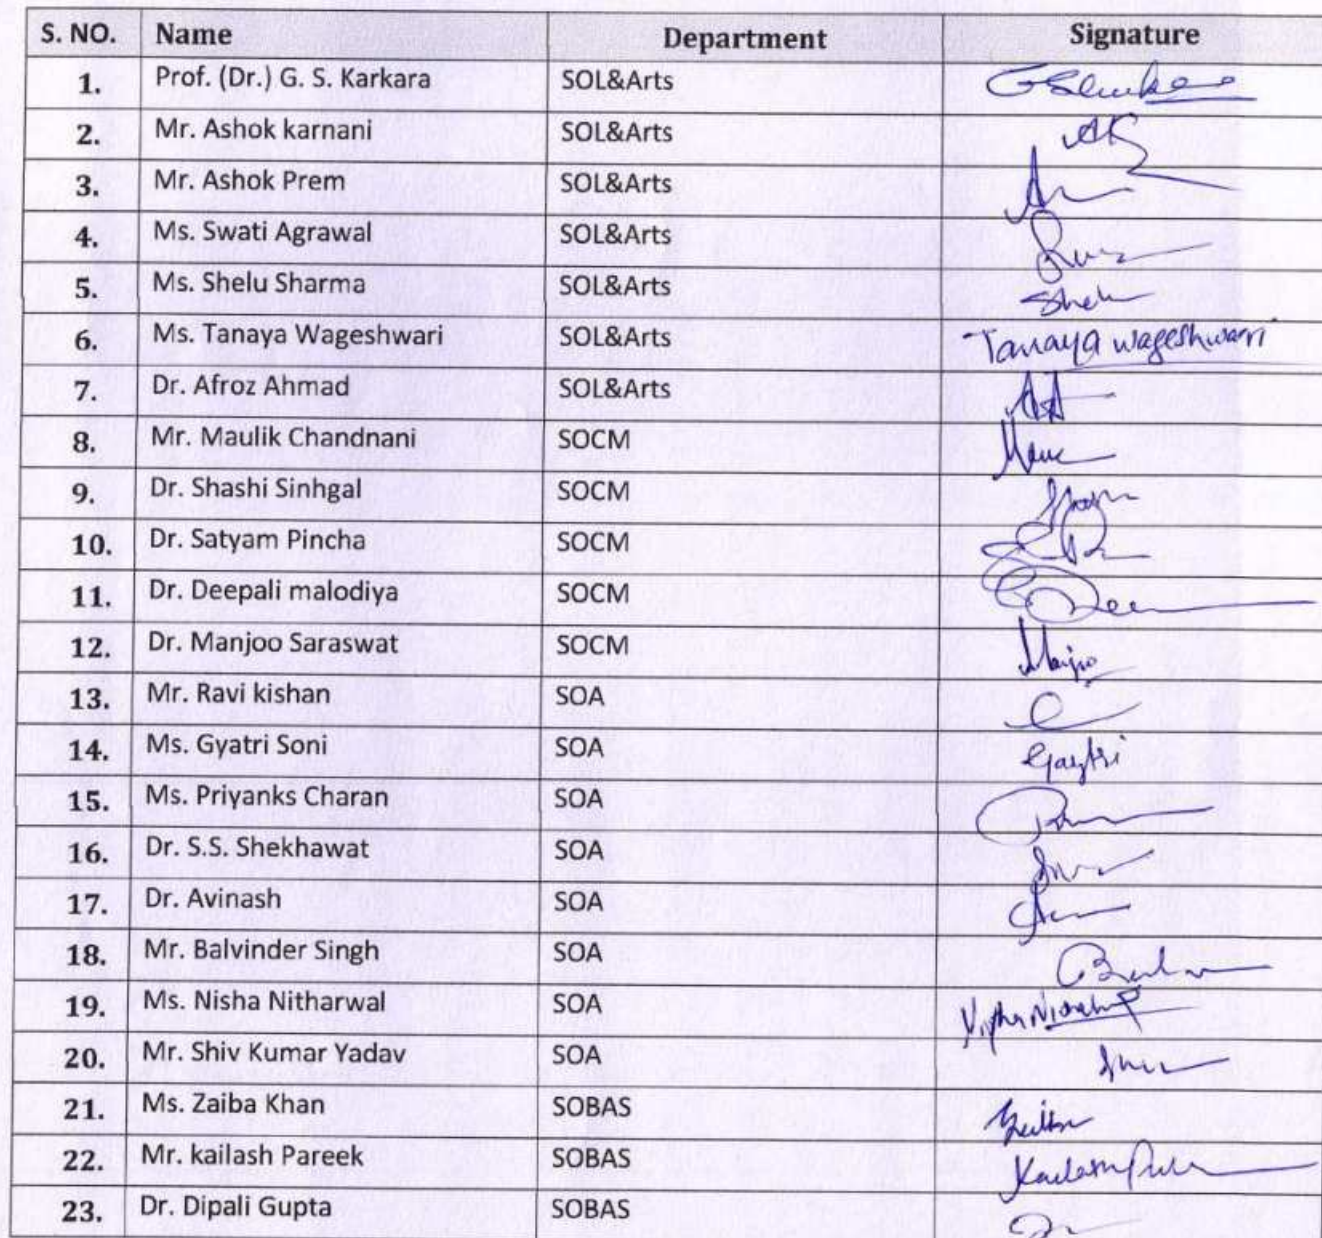 S. NO. Name Department Signature
1. Prof. (Dr.) G. S. Karkara SOL&Arts
2. Mr. Ashok karnani SOL&Arts AK
3. Mr. Ashok Prem SOL&Arts
4. Ms. Swati Agrawal SOL&Arts
5. Ms. Shelu Sharma SOL&Arts Shelu
6. Ms. Tanaya Wageshwari SOL&Arts Tanaya wageshwari
7. Dr. Afroz Ahmad SOL&Arts
8. Mr. Maulik Chandnani SOCM
9. Dr. Shashi Sinhgal SOCM
10. Dr. Satyam Pincha SOCM
11. Dr. Deepali malodiya SOCM
12. Dr. Manjoo Saraswat SOCM Manjoo
13. Mr. Ravi kishan SOA
14. Ms. Gyatri Soni SOA Gaytri
15. Ms. Priyanks Charan SOA
16. Dr. S.S. Shekhawat SOA
17. Dr. Avinash SOA
18. Mr. Balvinder Singh SOA
19. Ms. Nisha Nitharwal SOA
20. Mr. Shiv Kumar Yadav SOA
21. Ms. Zaiba Khan SOBAS
22. Mr. kailash Pareek SOBAS
23. Dr. Dipali Gupta SOBAS